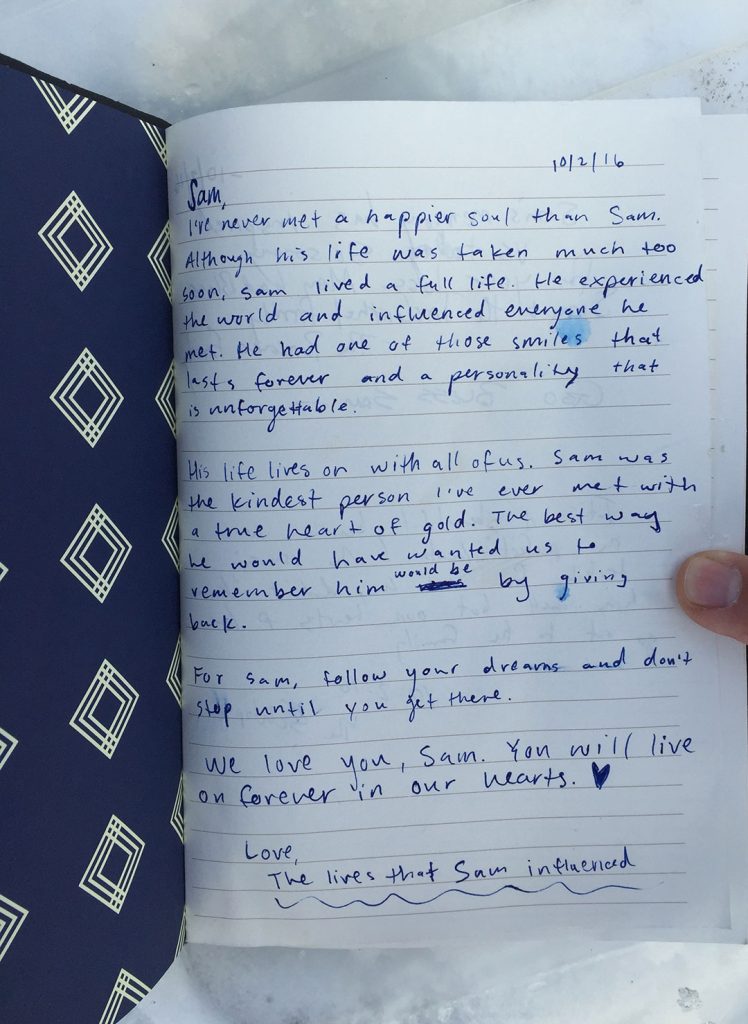 10/2/16
Sam,
I've never met a happier soul than Sam.
Although his life was taken much too
soon, Sam lived a full life. He experienced
the world and influenced everyone he
met. He had one of those smiles that
lasts forever and a personality that
is unforgettable.
His life lives on with all of us. Sam was
the kindest person I've ever met with
a true heart of gold. The best way
he would have wanted us to
remember him would be by giving
back.
For Sam, follow your dreams and don't
stop until you get there.
We love you, Sam. You will live
on forever in our hearts. ♥
Love,
The lives that Sam influenced